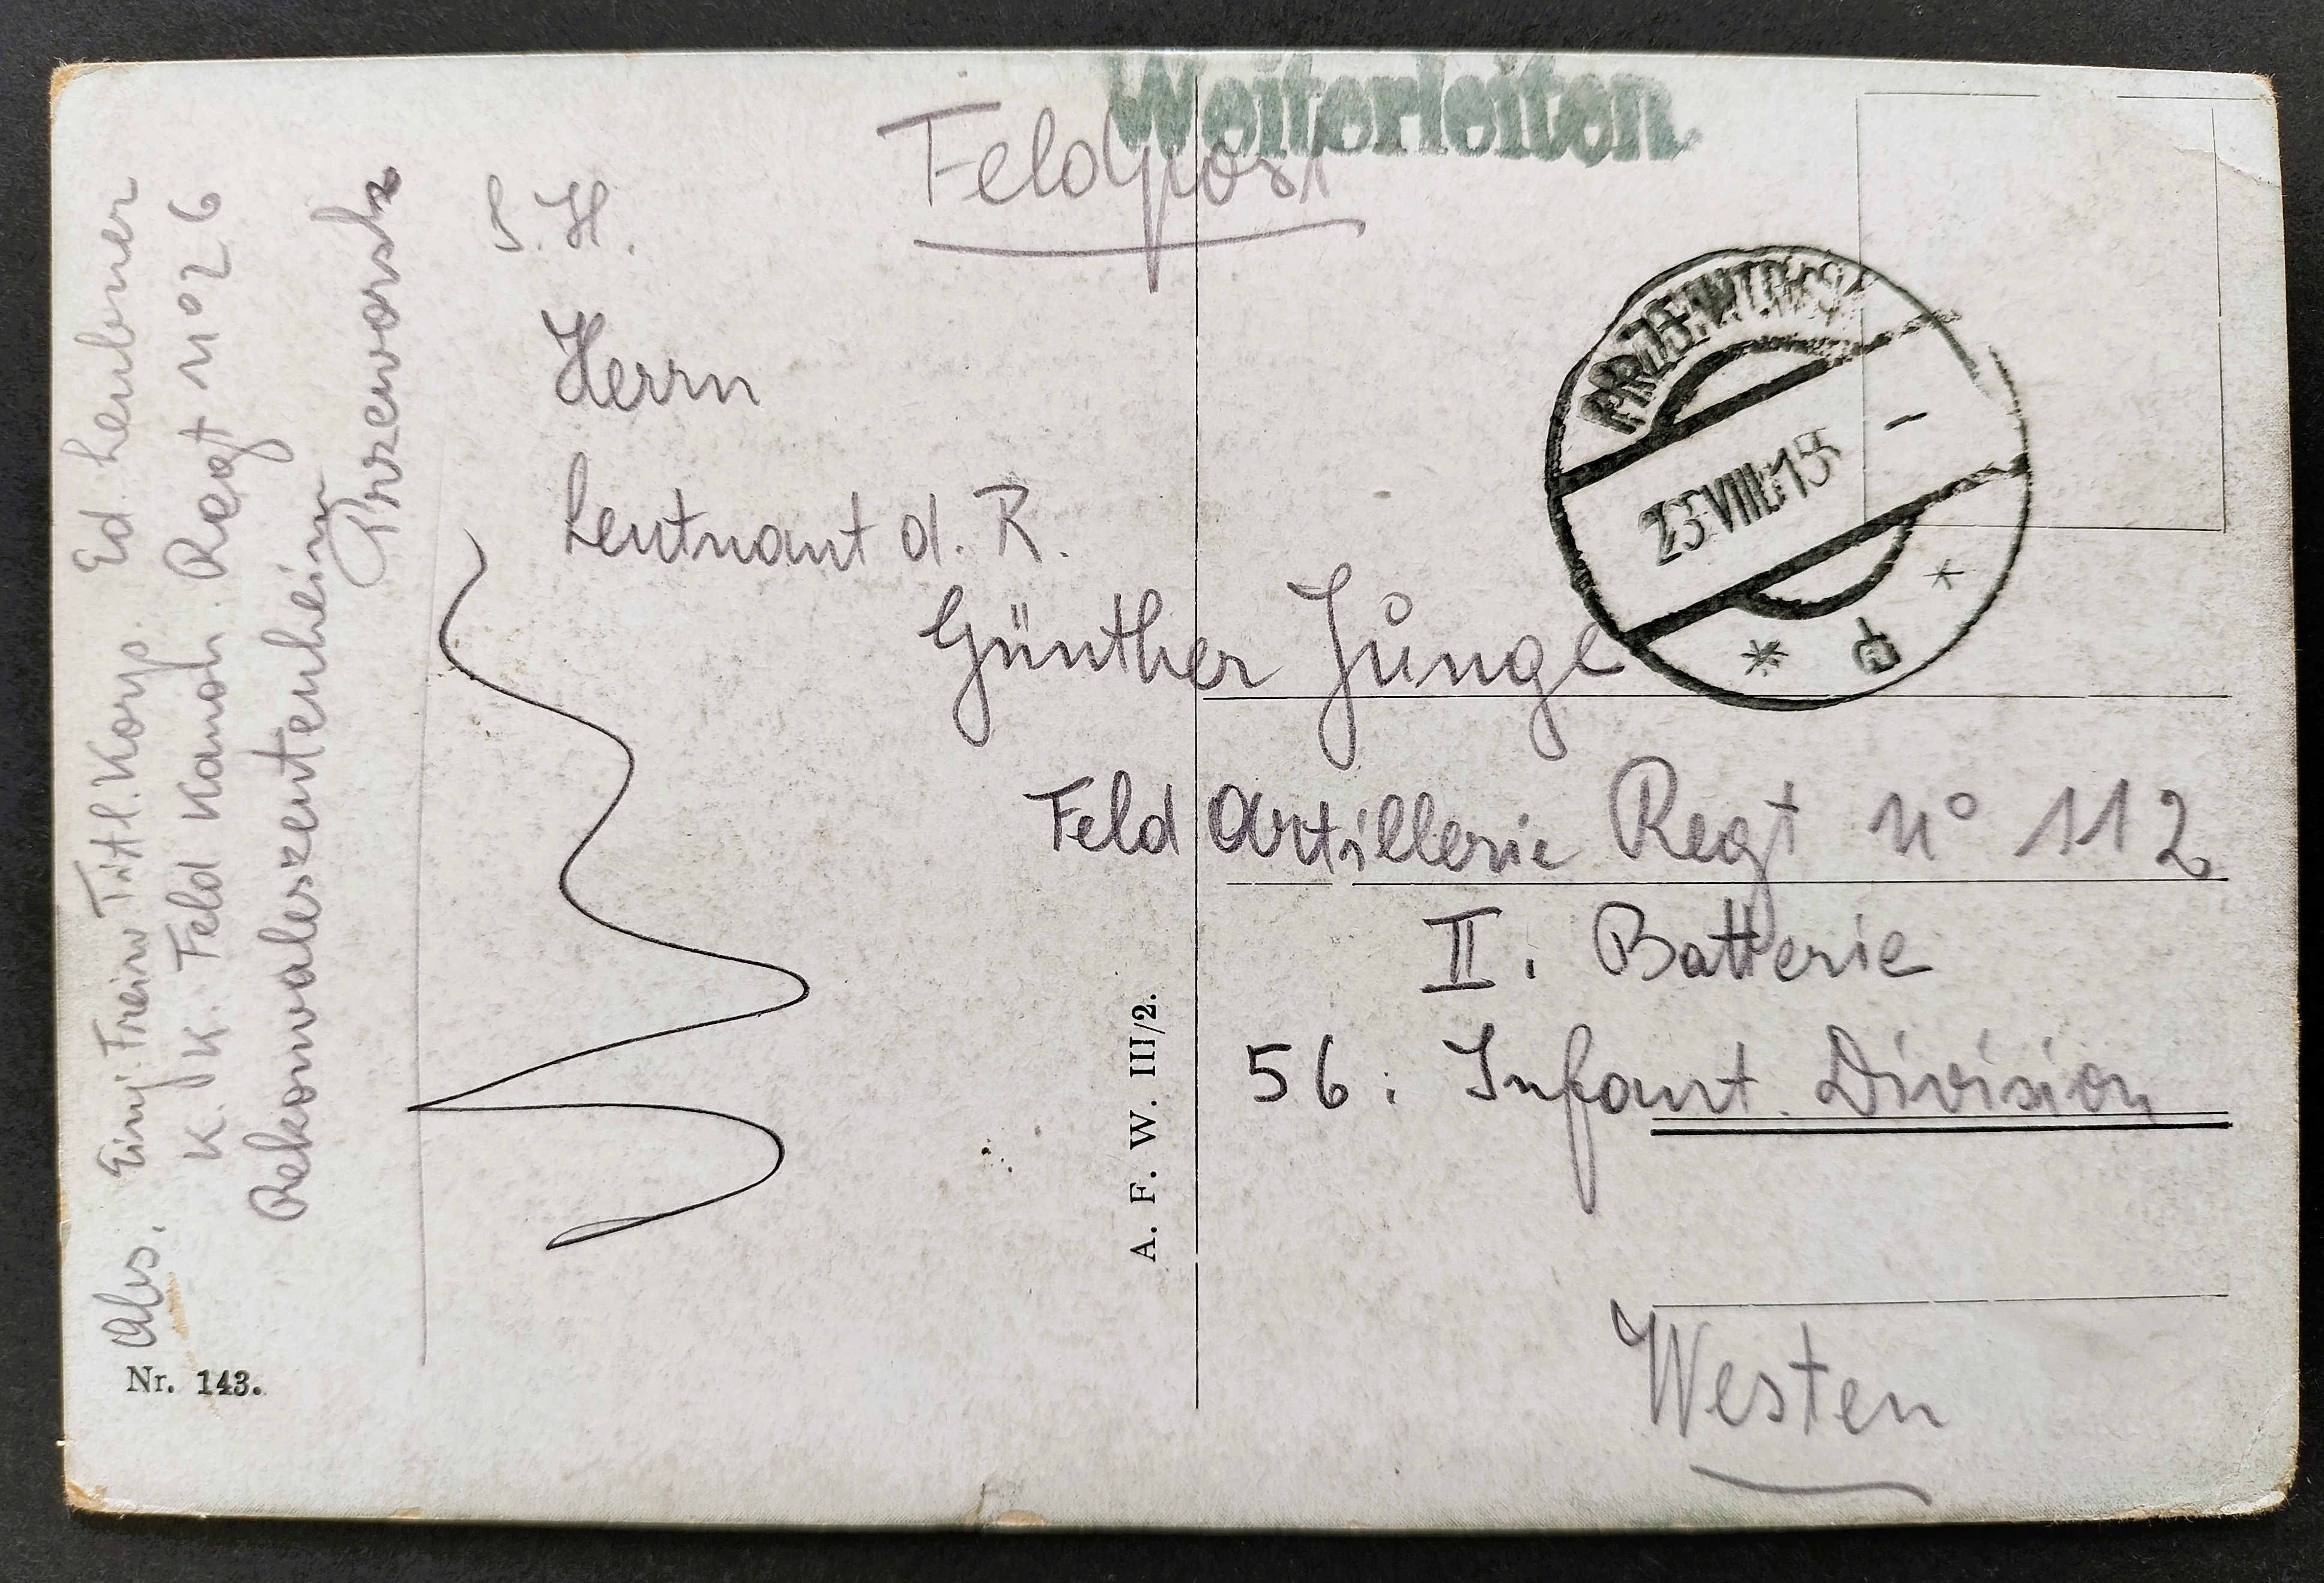 Weiterleiten.
Feldpost
S. H.
Herrn
Leutnant d. R.
Günther Junge
Feld Artillerie Regt No 112
II. Batterie
56. Infant. Division
Westen
PRZEWORSK
23 VIII 15
* d *
Abs. Einj. Freiw Titl. Korp. Ed.
K. K. Feld Kanon. Regt No 26
Rekonvaleszentenheim
Przeworsk
A. F. W. III/2.
Nr. 143.